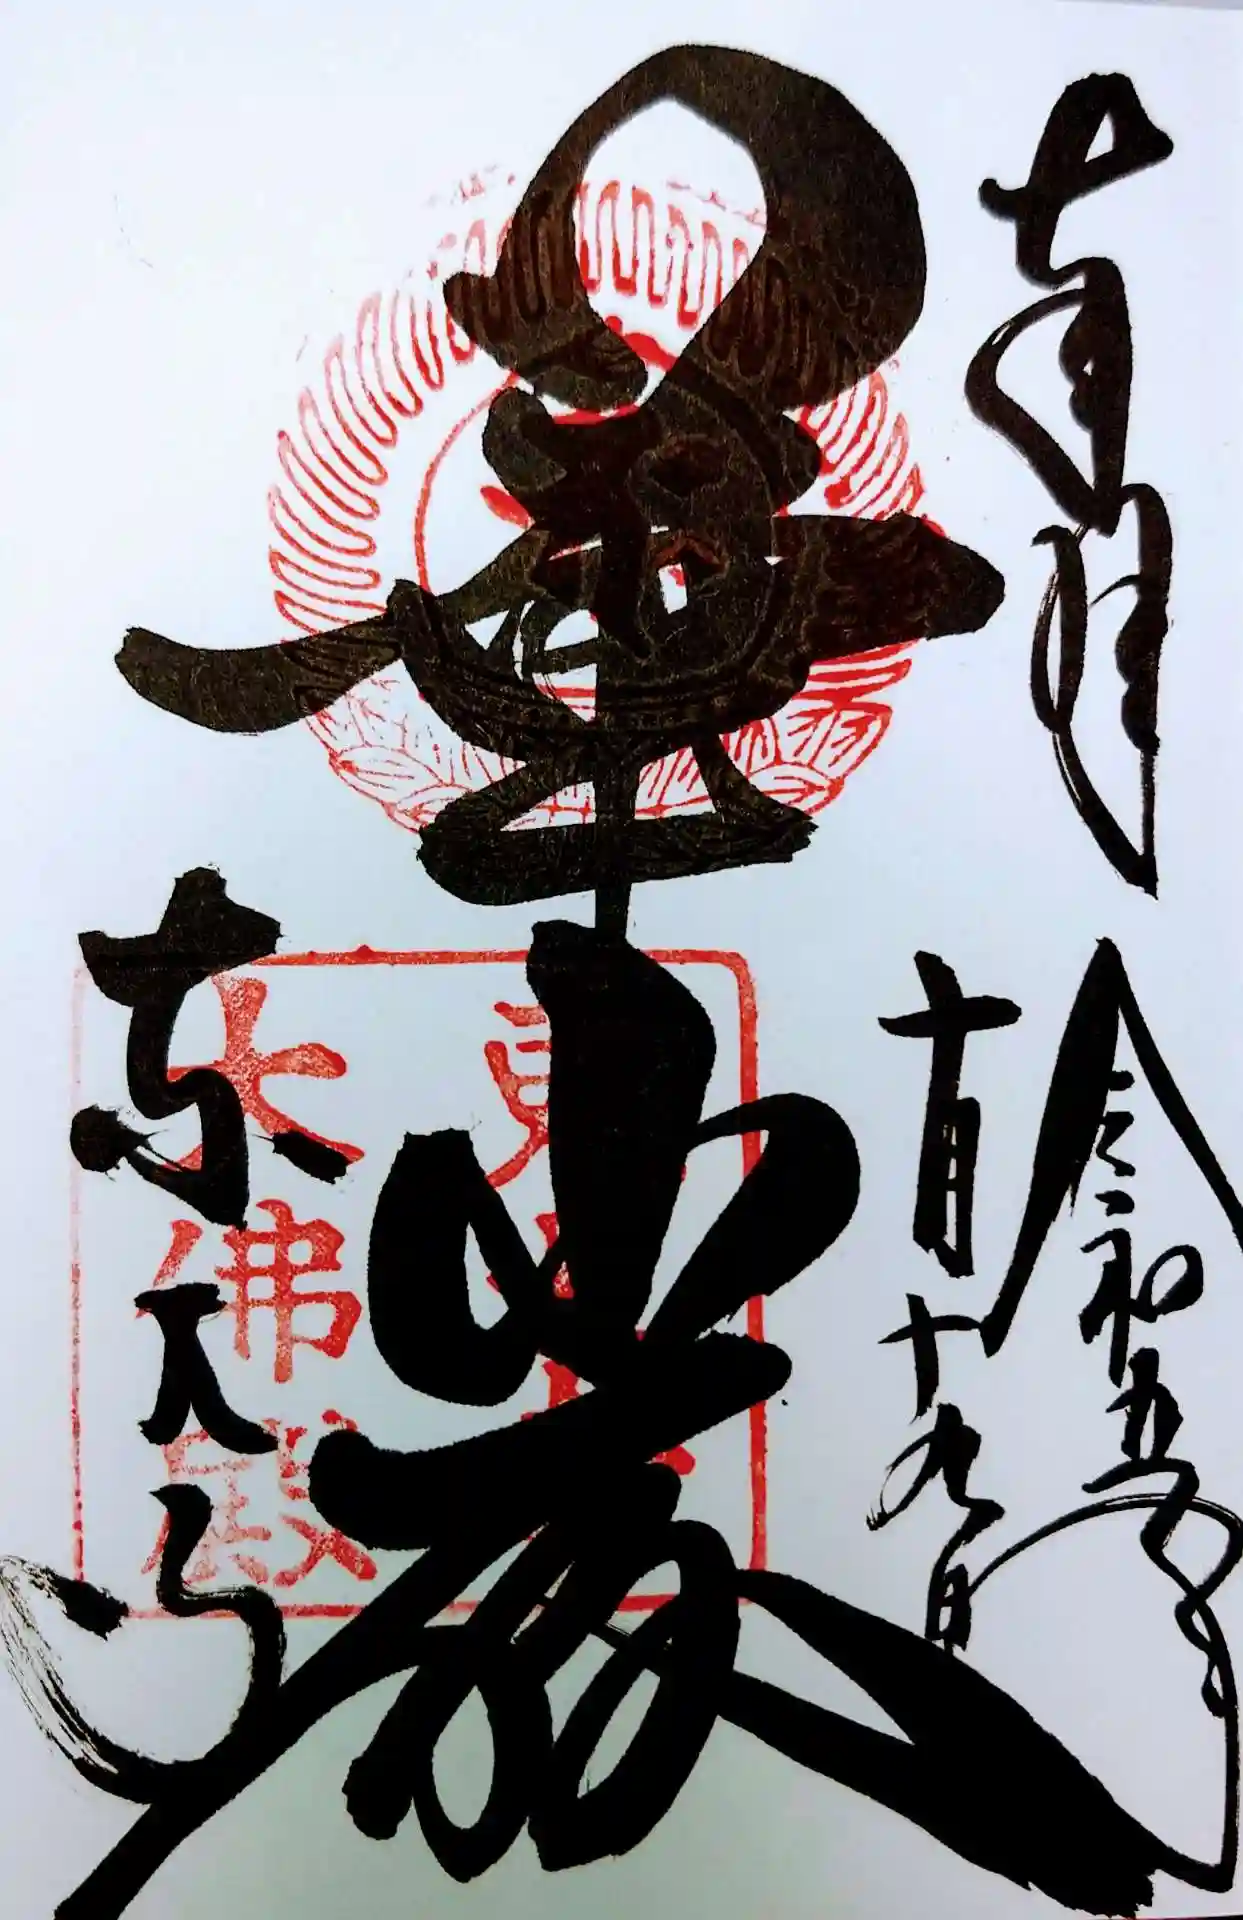 奉拝
令和五年
十月十九日
華厳
東大寺
大佛殿